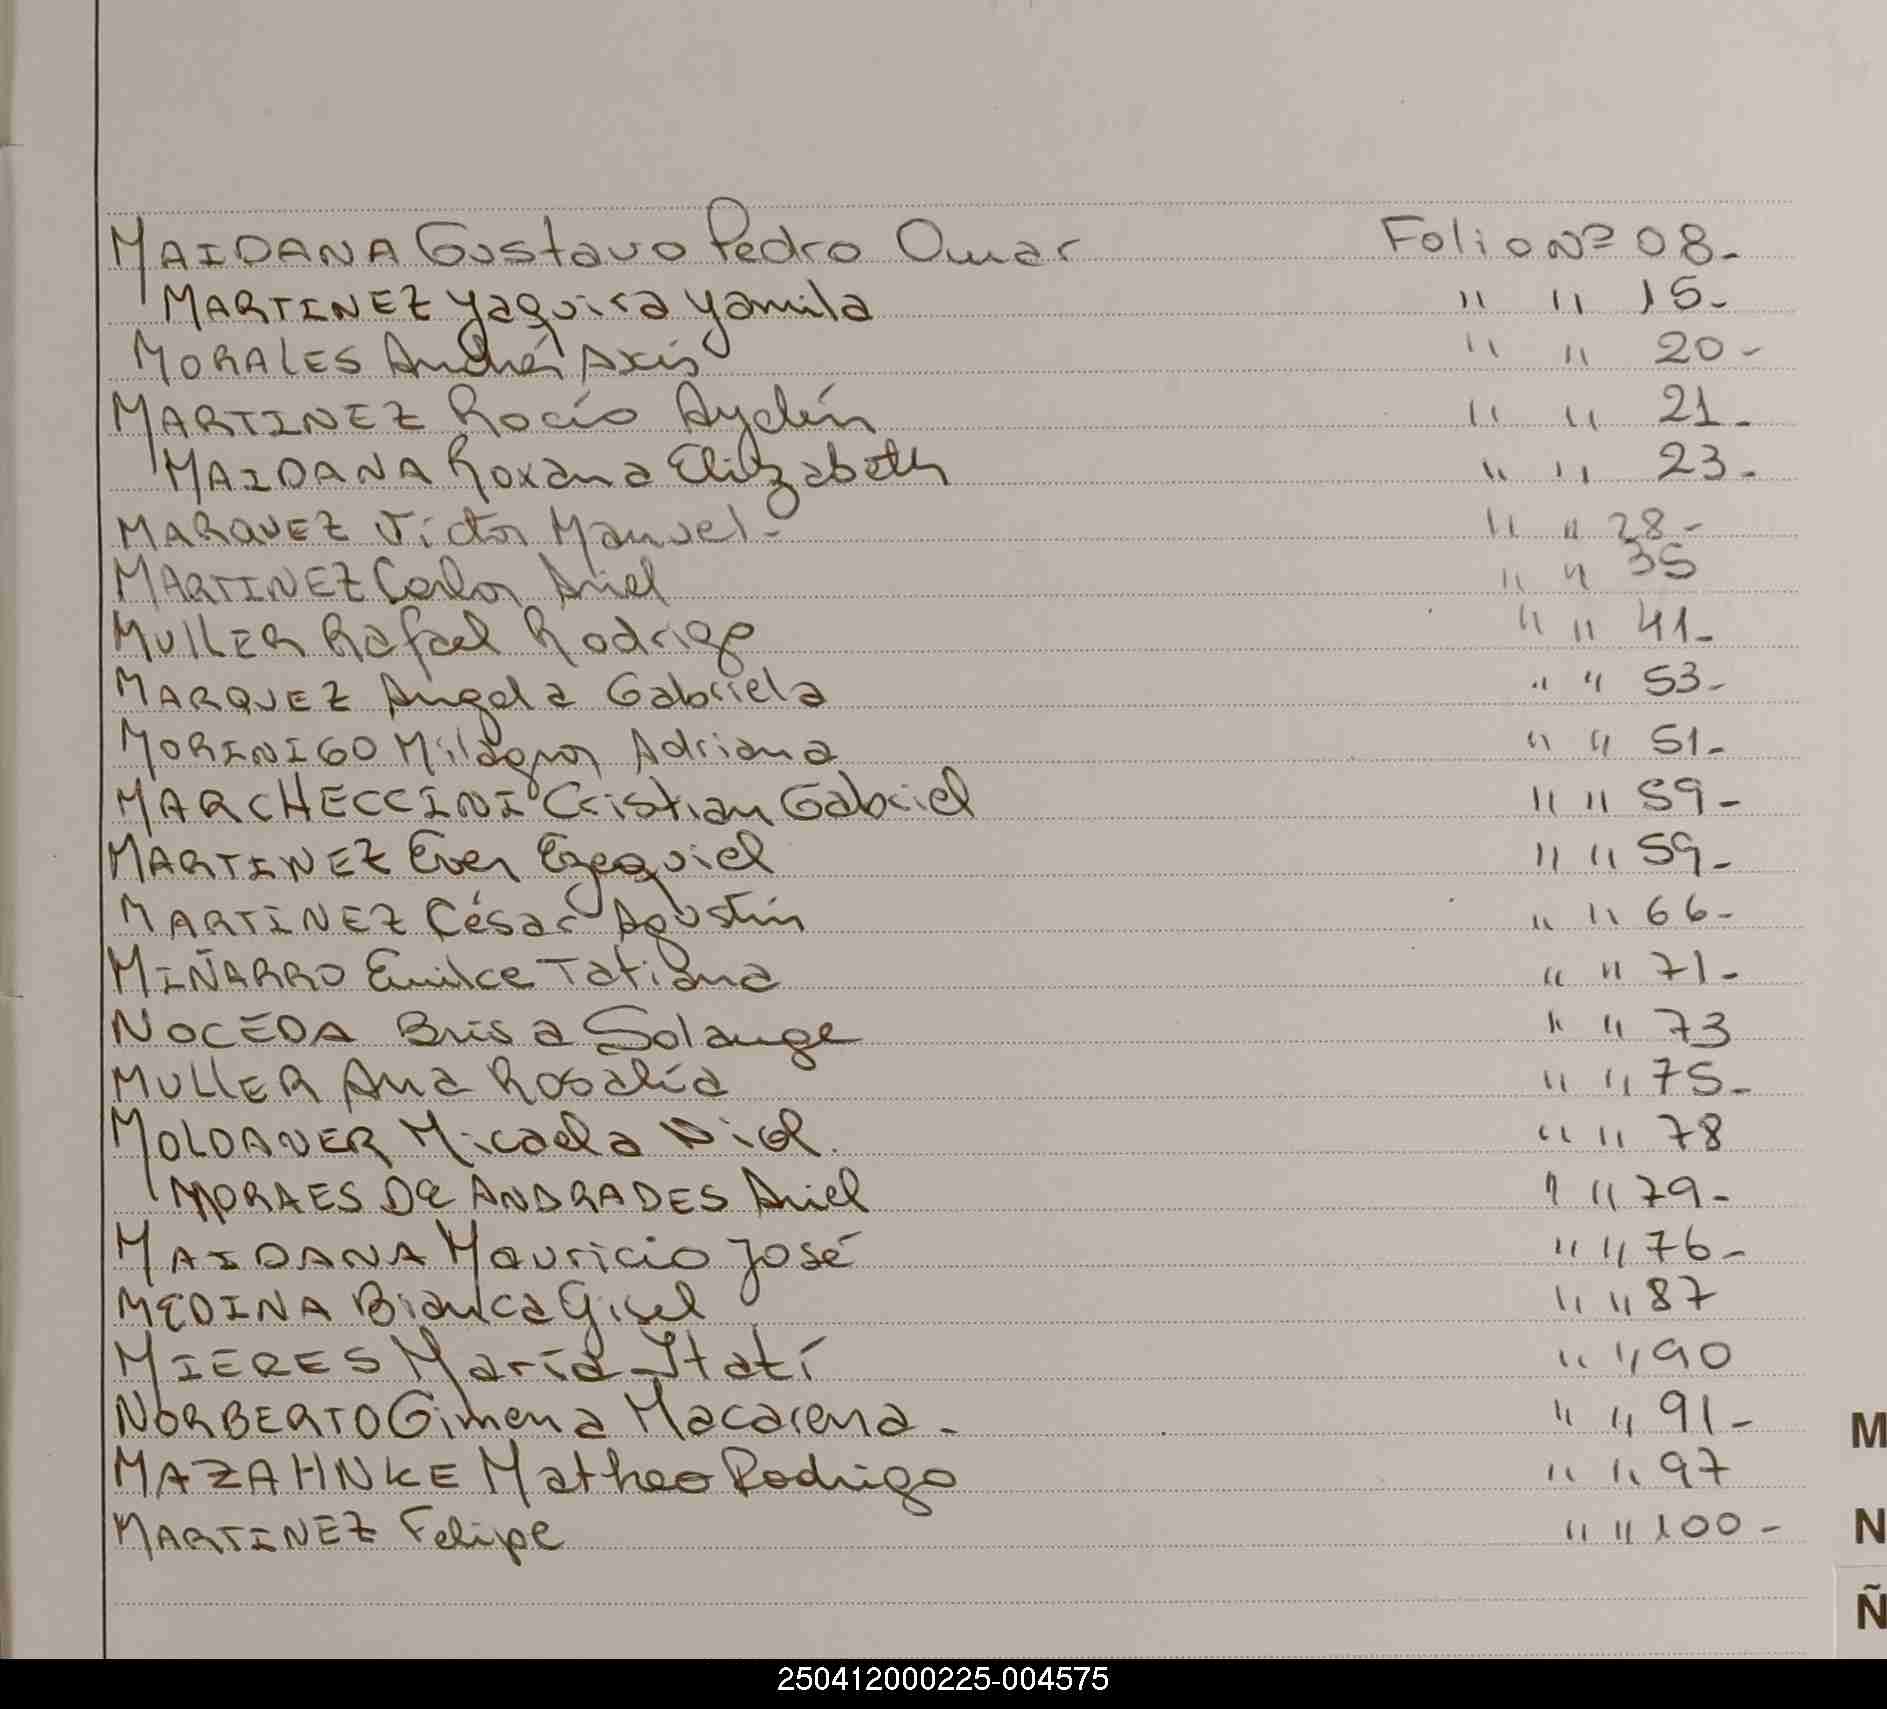 MAIDANA Gustavo Pedro Omar Folio Nº 08-
MARTINEZ Yaquira Yamila " " 15-
MORALES Andréi Axis " " 20-
MARTINEZ Rocío Aydén " " 21-
MAIDANA Roxana Elizabeth " " 23-
MARQUEZ Víctor Manuel- " " 28-
MARTINEZ Carlos Ariel " " 35
MULLER Rafael Rodrigo " " 41-
MARQUEZ Angela Gabriela " " 53-
MORINIGO Milagros Adriana " " 51-
MARCHECCINI Cristian Gabriel " " 59-
MARTINEZ Ever Ezequiel " " 59-
MARTINEZ César Agustín " " 66-
MIÑARRO Emilce Tatiana " " 71-
NOCEDA Brisa Solange " " 73
MULLER Ana Rosalía " " 75-
MOLDANER Micaela " " 78
MORAES DE ANDRADES Ariel " " 79-
MAIDANA Mauricio José " " 76-
MEDINA Bianca Gisel " " 87
MIERES María Itatí " " 90
NORBERTO Gimena Macarena - " " 91-
MAZAHNKE Matheo Rodrigo " " 97
MARTINEZ Felipe " " 100-
M
N
Ñ
250412000225-004575